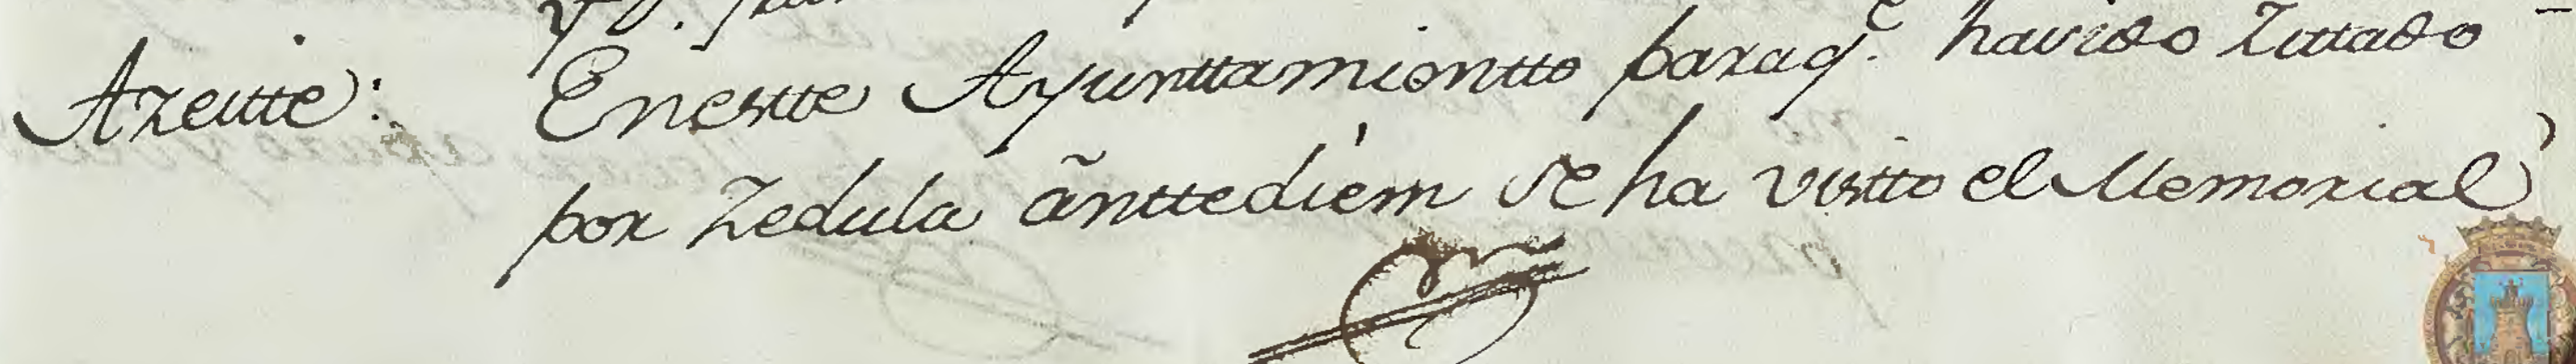 Azeitte:
En estte Ayunttamientto paraq.e havido Zittado
por Zedula ãnttediem se ha visitto el Memorial